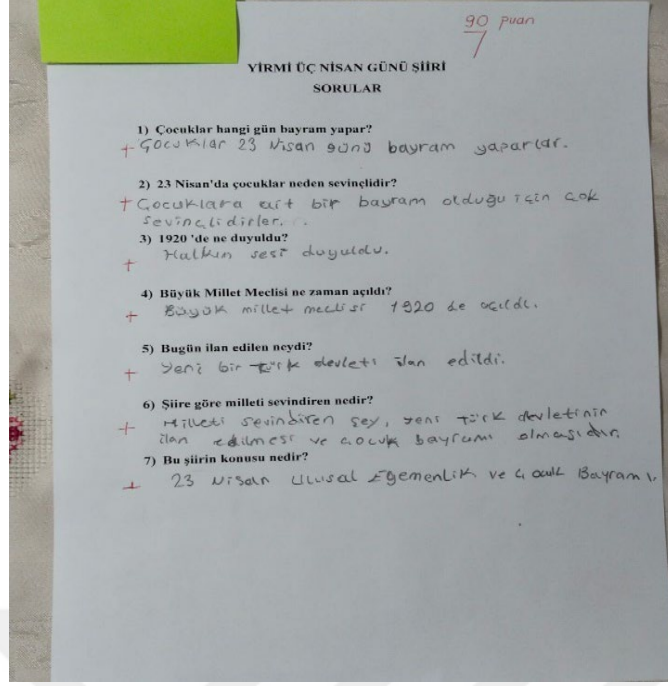 90 puan
7
YİRMİ ÜÇ NİSAN GÜNÜ ŞİİRİ
SORULAR
1) Çocuklar hangi gün bayram yapar?
+ Çocuklar 23 Nisan günü bayram yaparlar.
2) 23 Nisan'da çocuklar neden sevinçlidir?
+ Çocuklara ait bir bayram olduğu için çok
sevinçlidirler.
3) 1920 'de ne duyuldu?
+ Halkın sesi duyuldu.
4) Büyük Millet Meclisi ne zaman açıldı?
+ Büyük millet meclisi 1920 de açıldı.
5) Bugün ilan edilen neydi?
+ Yeni bir türk devleti ilan edildi.
6) Şiire göre milleti sevindiren nedir?
+ Milleti sevindiren şey, yeni türk devletinin
ilan edilmesi ve çocuk bayramı olmasıdır.
7) Bu şiirin konusu nedir?
+ 23 Nisan Ulusal Egemenlik ve Çocuk Bayramı.